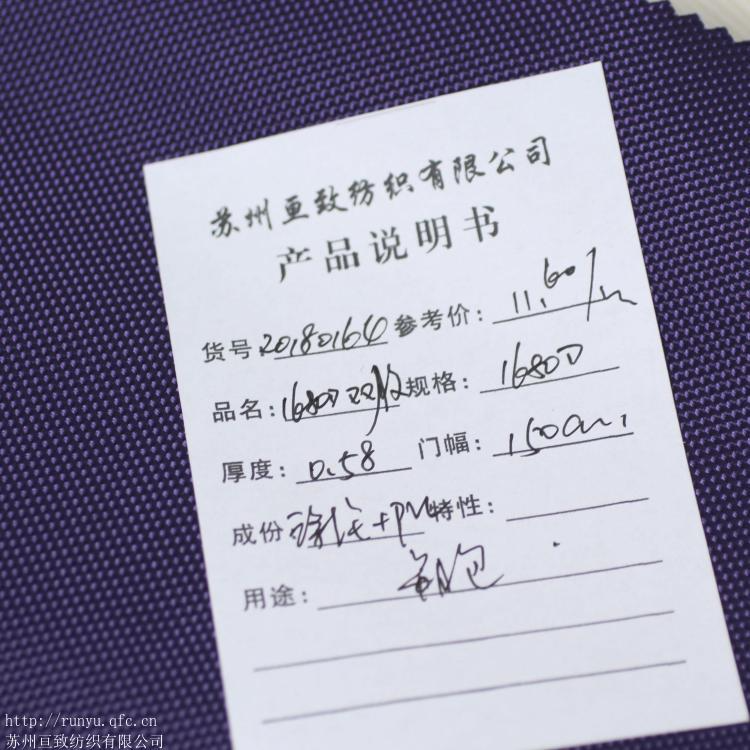 苏州亘致纺织有限公司
产品说明书
货号 20180164 参考价: 11.60/m
品名: 1680D双股 规格: 1680D
厚度: 0.58 门幅: 150cm
成份 +PU 特性:
用途: 箱包
http://runyu.qfc.cn
苏州亘致纺织有限公司